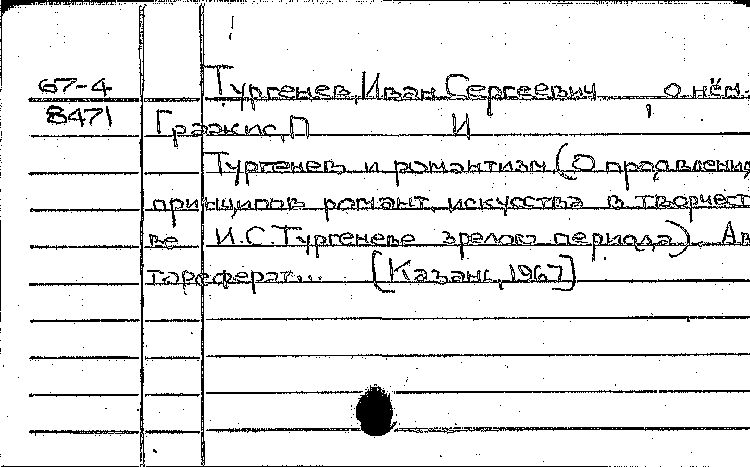 67-4 Тургенев, Иван Сергеевич, о нём.
8471 Гражис, П И
Тургенев и романтизм (О проявлении
принципов романт. искусства в творчест
ве И.С. Тургенева зрелого периода). Ав
тореферат... [Казань, 1967]